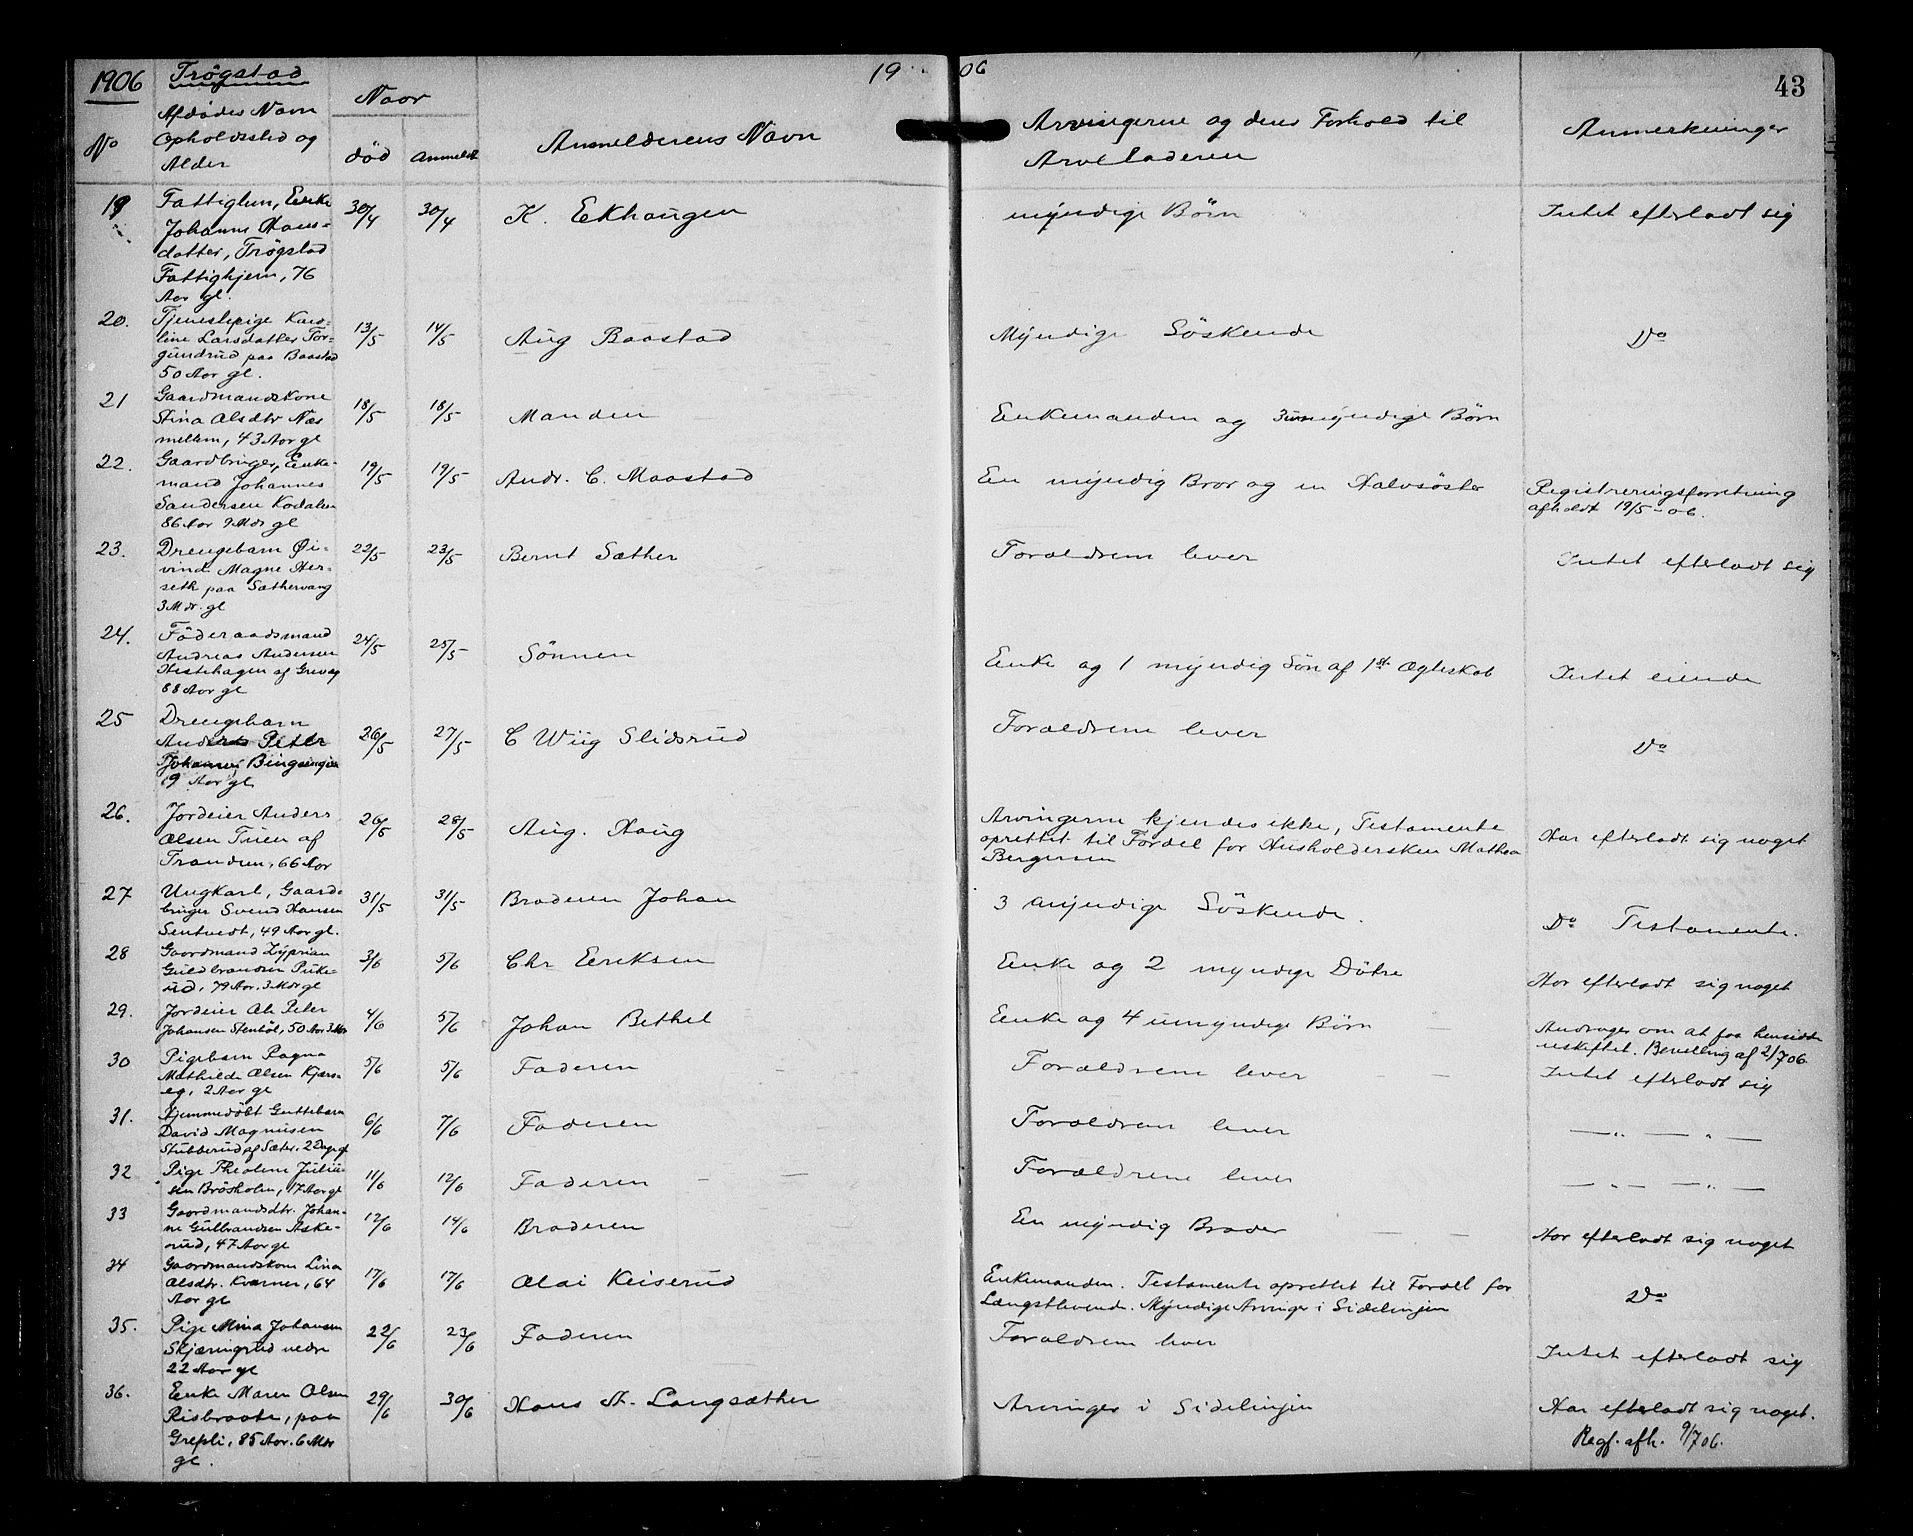 1906 Trøgstad 19 06 43
Naar
No Afdødes Navn Opholdssted og Alder død anmeldt Anmelderens Navn Arvingerne og deres Forhold til Arveladeren Anmerkninger
19 Fattiglem, Enke 30/4 30/4 K. Ekhaugen myndige Børn Intet efterladt sig
Johanne Hans-
datter, Trøgstad
Fattighjem, 76
Aar gl.
20. Tjenestepige Karo- 13/5 14/5 Aug Baastad Myndige Søskende Do
line Larsdatter Tor-
gundrud paa Baastad
50 Aar gl.
21 Gaardmandskone 18/5 18/5 Manden Enkemanden og 3 umyndige Børn
Stina Olsdtr Næs
mellem, 43 Aar gl
22. Gaardbruger, Enke- 19/5 19/5 Andr. C. Maastad En myndig Bror og en Halvsøster Registreringsforretning
mand Johannes afholdt 19/5-06.
Sandersen Kodalen
86 Aar 9 Mdr gl
23. Drengebarn Øi- 22/5 23/5 Bernt Sæther Forældrene lever Intet efterladt sig
vind Magne Her-
seth paa Sæthervang
3 Mdr. gl
24. Føderaadsmand 24/5 25/5 Sønnen Enke og 1 myndig Søn af 1st Ægteskab Intet eiende
Andreas Andersen
Hestehagen af Grevag
88 Aar gl
25 Drengebarn 26/5 27/5 C Wiig Slidsrud Forældrene lever Do
Anders Peter
Johannes Bingeengen
19 Aar gl
26. Jordeier Anders 26/5 28/5 Aug. Haug Arvingerne kjendes ikke, Testamente Har efterladt sig noget
Olsen Tuen af oprettet til Fordel for Husholdersken Mathea
Tranden, 66 Aar Bergersen
27 Ungkarl, Gaard- 31/5 31/5 Broderen Johan 3 myndige Søskende. Do Testamente.
bruger Svend Hansen
Sentvedt, 49 Aar gl.
28 Gaardmand Zyprian 3/6 5/6 Chr Eriksen Enke og 2 myndige Døtre Har efterladt sig noget
Guldbrandsen Puke-
rud, 79 Aar. 3 Mdr gl
29. Jordeier Ole Peter 4/6 5/6 Johan Bethel Enke og 4 umyndige Børn Andrager om at faa hensidde
Johansen Stenbøl, 50 Aar 3 Mdr uskiftet. Bevilling af 2/7 06.
30 Pigebarn Ragna 5/6 5/6 Faderen Forældrene lever Intet efterladt sig
Mathilde Olsen Kjærs-
eg, 2 Aar gl
31. Hjemmedøbt Guttebarn 6/6 7/6 Faderen Forældrene lever — „ — „ —
David Magnusen
Stubberud af Sæter, 2 Dage gl
32 Pige Theoline Juliu- 11/6 12/6 Faderen Forældrene lever — „ — „ —
sen Brøsholen, 17 Aar gl
33 Gaardmandsdtr. Johan- 12/6 14/6 Broderen En myndig Broder Har efterladt sig noget
ne Gulbrandsen Aske-
rud, 47 Aar gl
34 Gaardmandskone Lina 17/6 17/6 Olai Keiserud Enkemanden. Testamente oprettet til Fordel for Do
Olsdtr. Kværner, 64 Længstlevende. Myndige Arvinger i Sidelinjen
Aar gl
35. Pige Mina Johansen 22/6 23/6 Faderen Forældrene lever Intet efterladt sig
Skjæringrud nedre
22 Aar gl
36. Enke Maren Olsen 29/6 30/6 Hans A. Langsæther Arvinger i Sidelinjen Har efterladt sig noget.
Risbraate, paa Regf. afh. 9/7 06.
Grefsli, 85 Aar. 6 Mdr
gl.